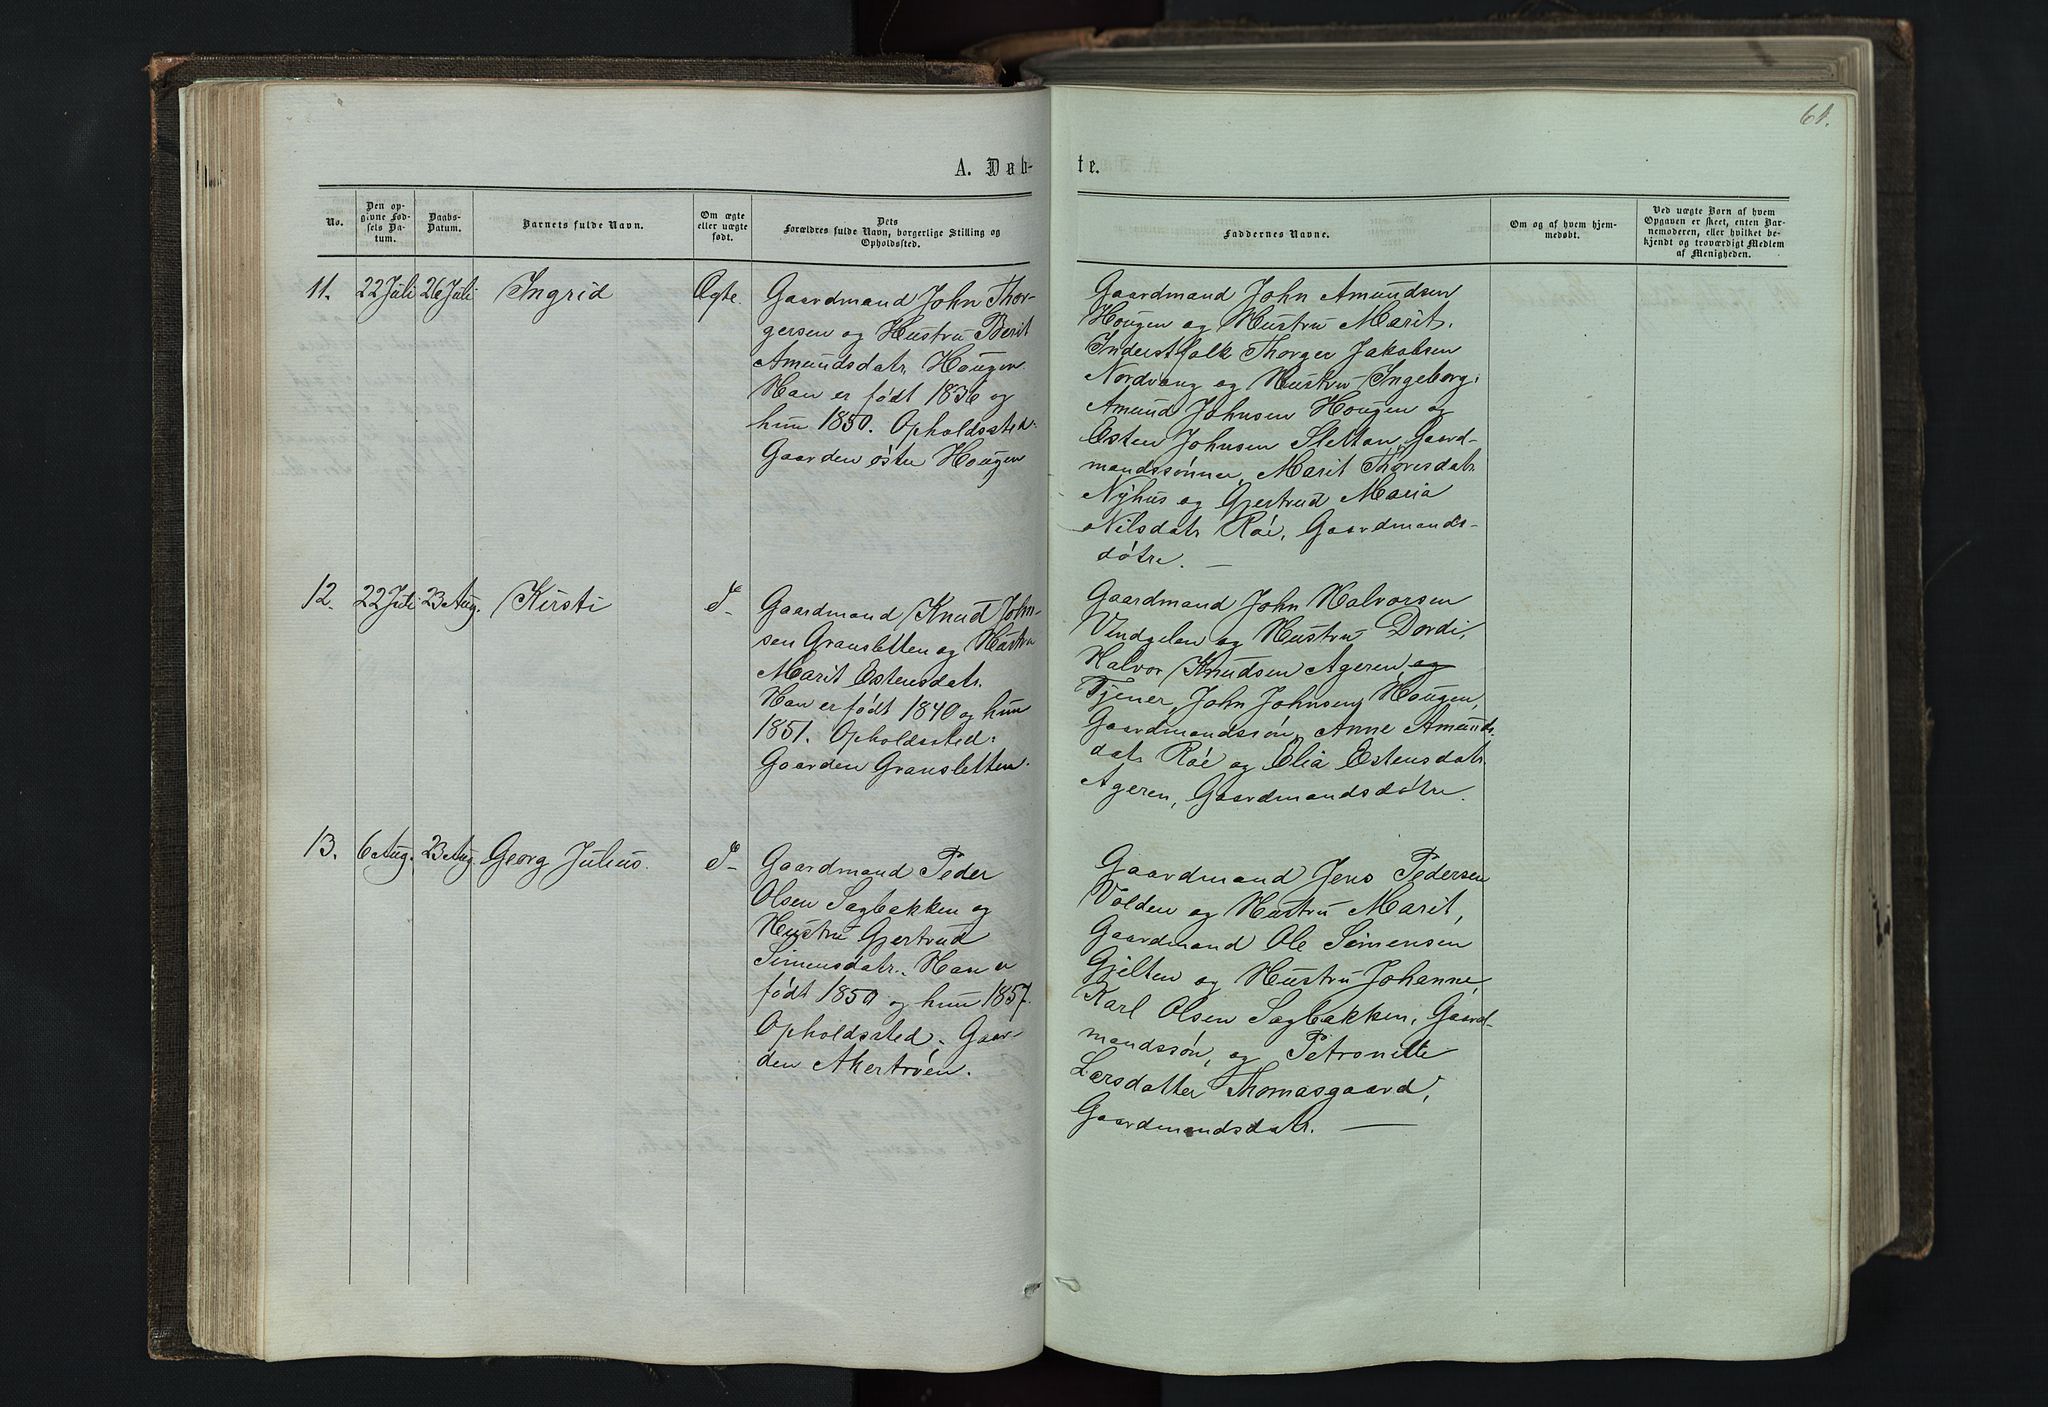 61.
A. Døb-
te.
No.
Den op-
givne Fød-
sels Da-
tum.
Daabs-
Datum.
Barnets fulde Navn.
Om ægte
eller uægte
født.
Dets
Forældres fulde Navn, borgerlige Stilling og
Opholdssted.
Faddernes Navne.
Om og af hvem hjem-
medøbt.
Ved uægte Børn af hvem
Opgaven er skeet, enten Bar-
nemoderen, eller hvilket be-
kjendt og troværdigt Medlem
af Menigheden.
11. 22 Juli 26 Juli Ingrid Ægte.
Gaardmand John Thor-
gersen og Hustru Berit
Amundsdatr. Hougen.
Han er født 1836 og
hun 1850. Opholdssted:
Gaarden østre Hougen
Gaardmand John Amundsen
Hougen og Hustru Marit.
Inderstfolk Thorger Jakobsen
Nordvang og Hustru Ingeborg.
Amund Johnsen Hougen og
Esten Johnsen Slettan, Gaard-
mandssønner, Marit Thoresdatr.
Nyhus og Gjertrud Maria
Nilsdatr. Røe, Gaardmands-
døtre. —
12. 22 Juli 23 Aug. Kirsti d-
Gaardmand Knud John-
sen Gransletten og Hustru
Marit Estensdatr.
Han er født 1840 og hun
1851. Opholdssted:
Gaarden Gransletten.
Gaardmand John Halvorsen
Vingelen og Hustru Dordi,
Halvor Knudsen Ageren, og
Tjener, John Johnsen Hougen,
Gaardmandssøn, Anne Amunds-
datr. Røe og Elia Estensdatr.
Ageren, Gaardmandsdøtre.
13. 6 Aug. 23 Aug. Georg Julius. d-
Gaardmand Peder
Olsen Sagbakken og
Hustru Gjertrud
Simensdatr. Han er
født 1850 og hun 1857.
Opholdssted: Gaar-
den Akertrøen.
Gaardmand Jens Pedersen
Volden og Hustru Marit,
Gaardmand Ole Simensen
Gjelten og Hustru Johanne,
Karl Olsen Sagbakken, Gaard-
mandssøn, og Petronille
Larsdatter Thomasgaard,
Gaardmandsdatr. —